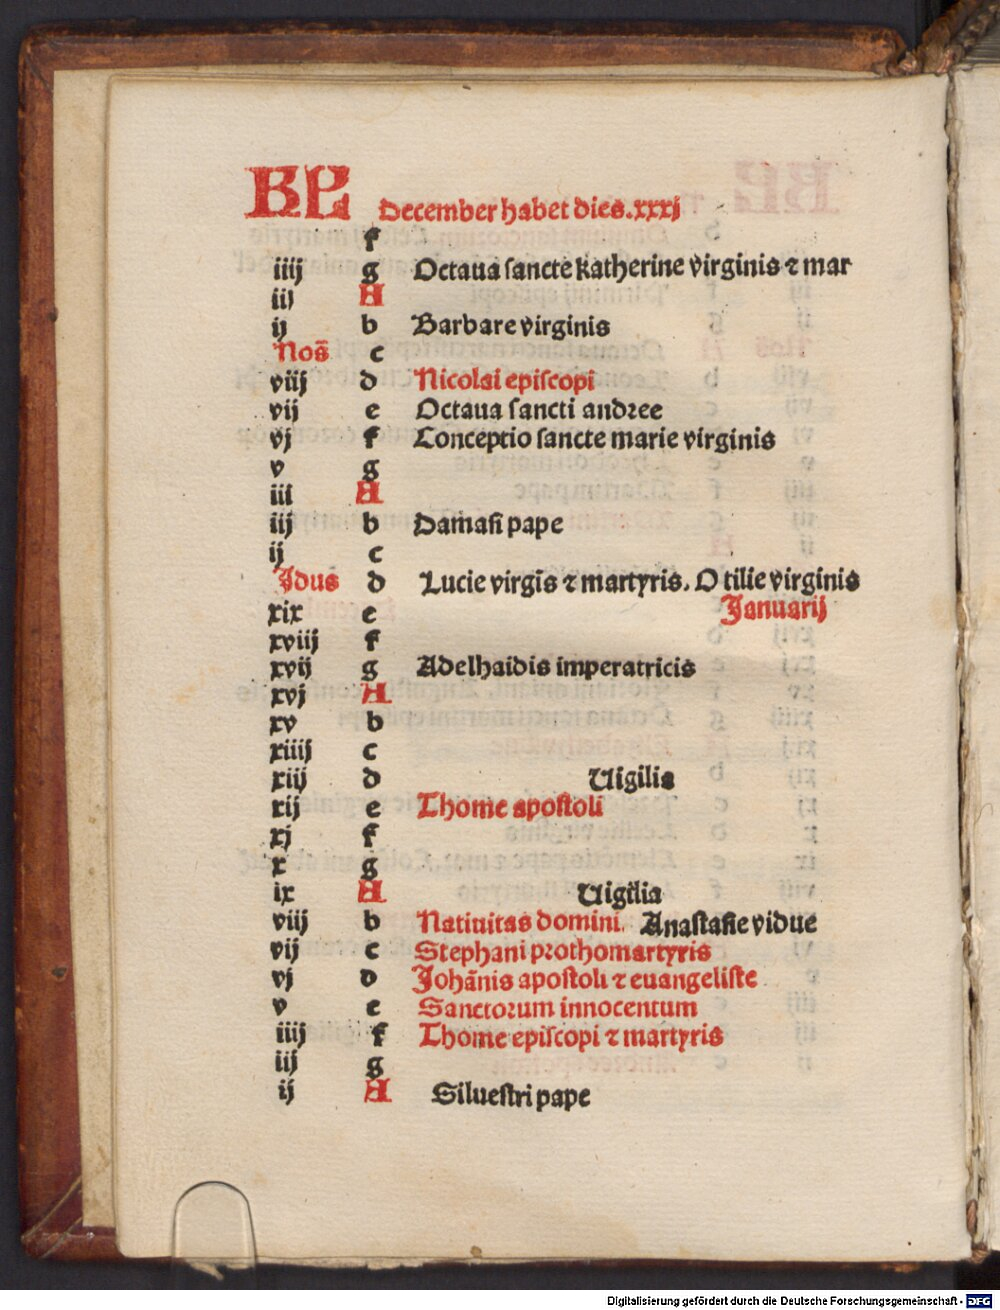 KL December habet dies.xxxj
f
iiij g Octaua sancte katherine virginis ⁊ mar
iij A
ij b Barbare virginis
Nōs c
viij d Nicolai episcopi
vij e Octaua sancti andree
vj f Conceptio sancte marie virginis
v g
iiij A
iij b Damasi pape
ij c
Jdus d Lucie virgīs ⁊ martyris. Otilie virginis
xix e Januarij
xviij f
xvij g Adelhaidis imperatricis
xvj A
xv b
xiiij c
xiij d Uigilia
xij e Thome apostoli
xj f
x g
ix A Uigilia
viij b Natiuitas domini. Anastasie vidue
vij c Stephani prothomartyris
vj d Johānis apostoli ⁊ euangeliste
v e Sanctorum innocentum
iiij f Thome episcopi ⁊ martyris
iij g
ij A Siluestri pape
Digitalisierung gefördert durch die Deutsche Forschungsgemeinschaft - DFG